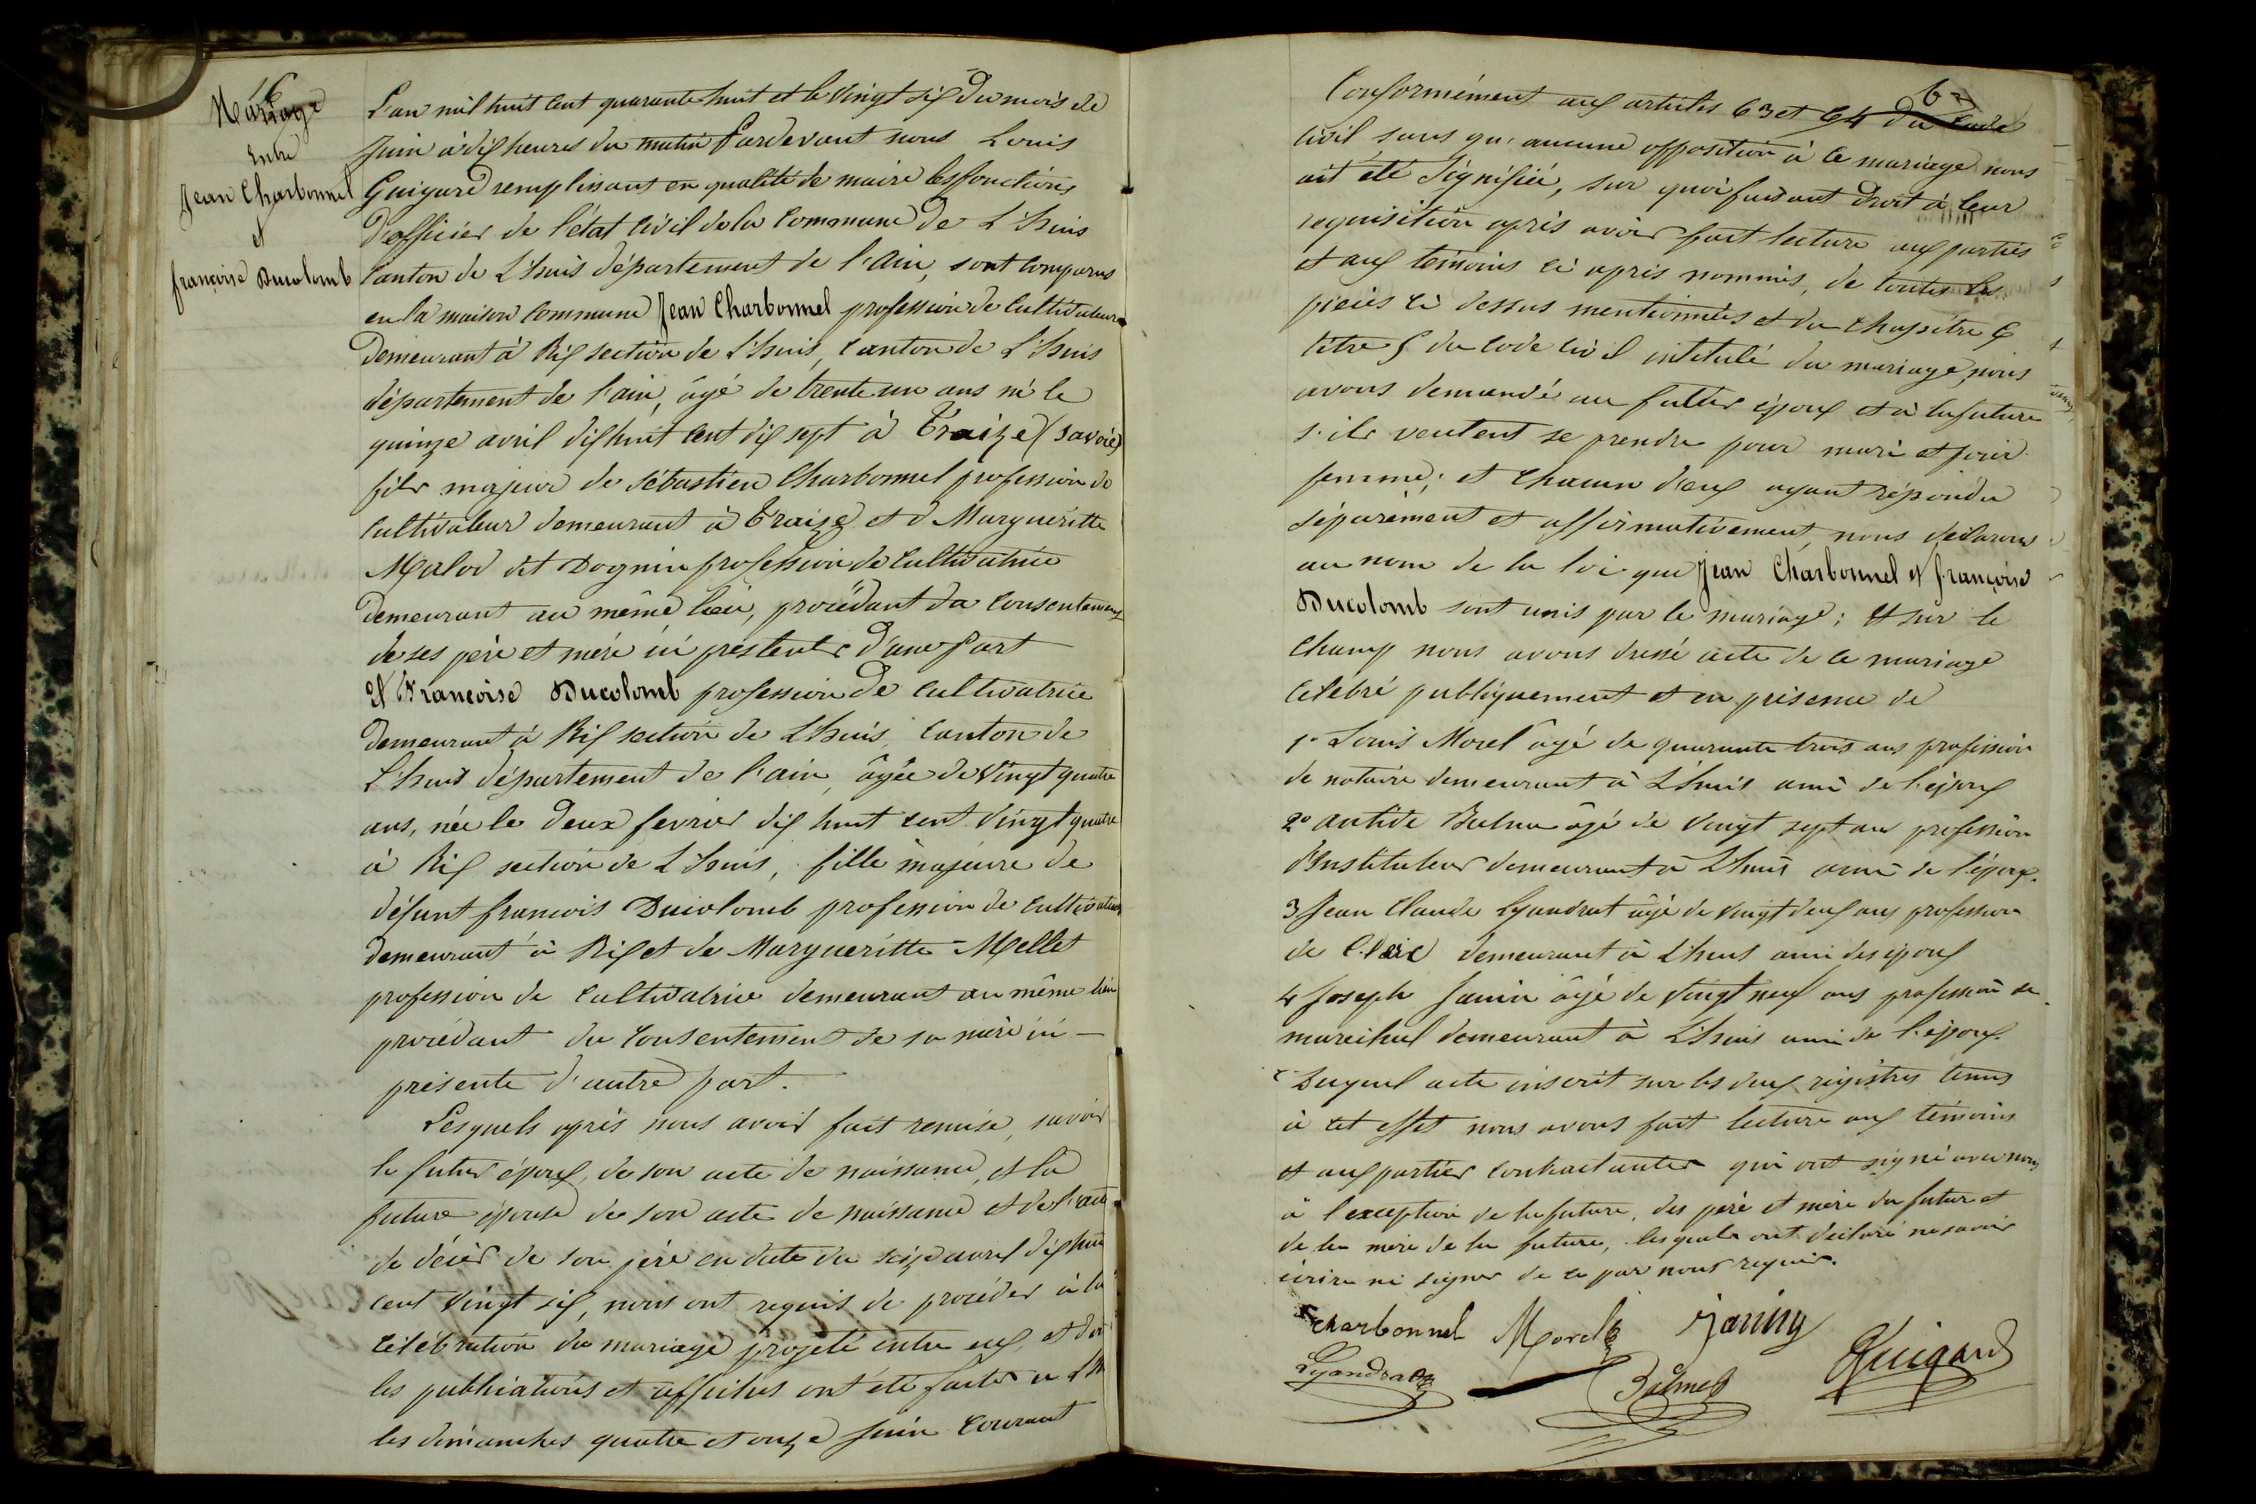 16
Mariage
Entre
Jean Charbonnel
et
françoise Ducolomb
L'an mil huit cent quarante huit et le vingt six du mois de
Juin à dix heures du matin Pardevant nous Louis
Guigard remplissant en qualité de maire les fonctions
d'officier de l'état civil de la Commune de L'huis
Canton de L'huis département de l'Ain, sont comparus
en la maison commune Jean Charbonnel profession de Cultivateur
Demeurant à Rix section de L'huis, Canton de L'huis
département de l'ain, âgé de trente un ans né le
quinze avril dix huit cent dix sept à Traize (Savoie)
fils majeur de Sébastien Charbonnel profession de
Cultivateur demeurant à Traize et d Margueritte
Malod dit Dognin profession de Cultivatrice
demeurant au même lieu, procédant du consentement
de ses père et mère ici présents d'une part
Et Françoise Ducolomb profession de cultivatrice
demeurant à Rix section de L'huis, Canton de
L'huis département de l'ain, âgée de vingt quatre
ans, née le deux fevrier dix huit cent vingt quatre
à Rix section de L'huis, fille majeure de
défunt francois Ducolomb profession de cultivateur
demeurant à Rix et de Margueritte Mellet
profession de cultivatrice demeurant au même lieu
procédant du consentement de sa mère ici
présente d'autre part.
Lesquels après nous avoir fait remise, savoir
le futur époux, de son acte de naissance, et la
future épouse de son acte de naissance et de l'acte
de décès de son père en date du seize avril dix huit
cent vingt six, nous ont requis de procéder à la
célébration du mariage projeté entre eux, et dont
les publications et affiches ont été faites a L'h
les dimanches quatre et onze Juin Courant
62
Conformément aux articles 63 et 64 du Code
civil sans qu'aucune opposition à ce mariage nous
ait été signifiée, sur quoi faisant droit à leur
requisition après avoir fait lecture aux parties
et aux témoins ci après nommés, de toutes les
pièces ci dessus mentionnées et du chapitre 6
titre 5 du code civil intitulé du mariage, nous
avons demandé au futur époux et à la future
s'ils veulent se prendre pour mari et pour
femme; et chacun d'eux ayant répondu
séparément et affirmativement, nous déclarons
au nom de la loi que Jean Charbonnel et françoise
Ducolomb sont unis par le mariage; Et sur le
champ nous avons dressé acte de ce mariage
célébré publiquement et en présence de
1° Louis Morel âgé de quarante trois ans profession
de notaire demeurant à L'huis ami de l'époux
2° antide Balme âgé de vingt sept ans profession
d'Instituteur demeurant à L'huis ami de l'époux.
3 Jean Claude Lyandrat âgé de vingt deux ans profession
de Clerc demeurant à L'huis ami des époux
4 Joseph Janin âgé de vingt neuf ans profession de
marechal demeurant à L'huis ami de l'époux.
Duquel acte inscrit sur les deux registres tenus
à cet effet nous avons fait lecture aux témoins
et aux parties contractantes qui ont signé avec nous
à l'exception de la future, des père et mère du futur et
de la mère de la future, lesquels ont déclaré ne savoir
écrire ni signer de ce par nous requis.
charbonnel Morel Janin
Lyandrat Balme Guigard